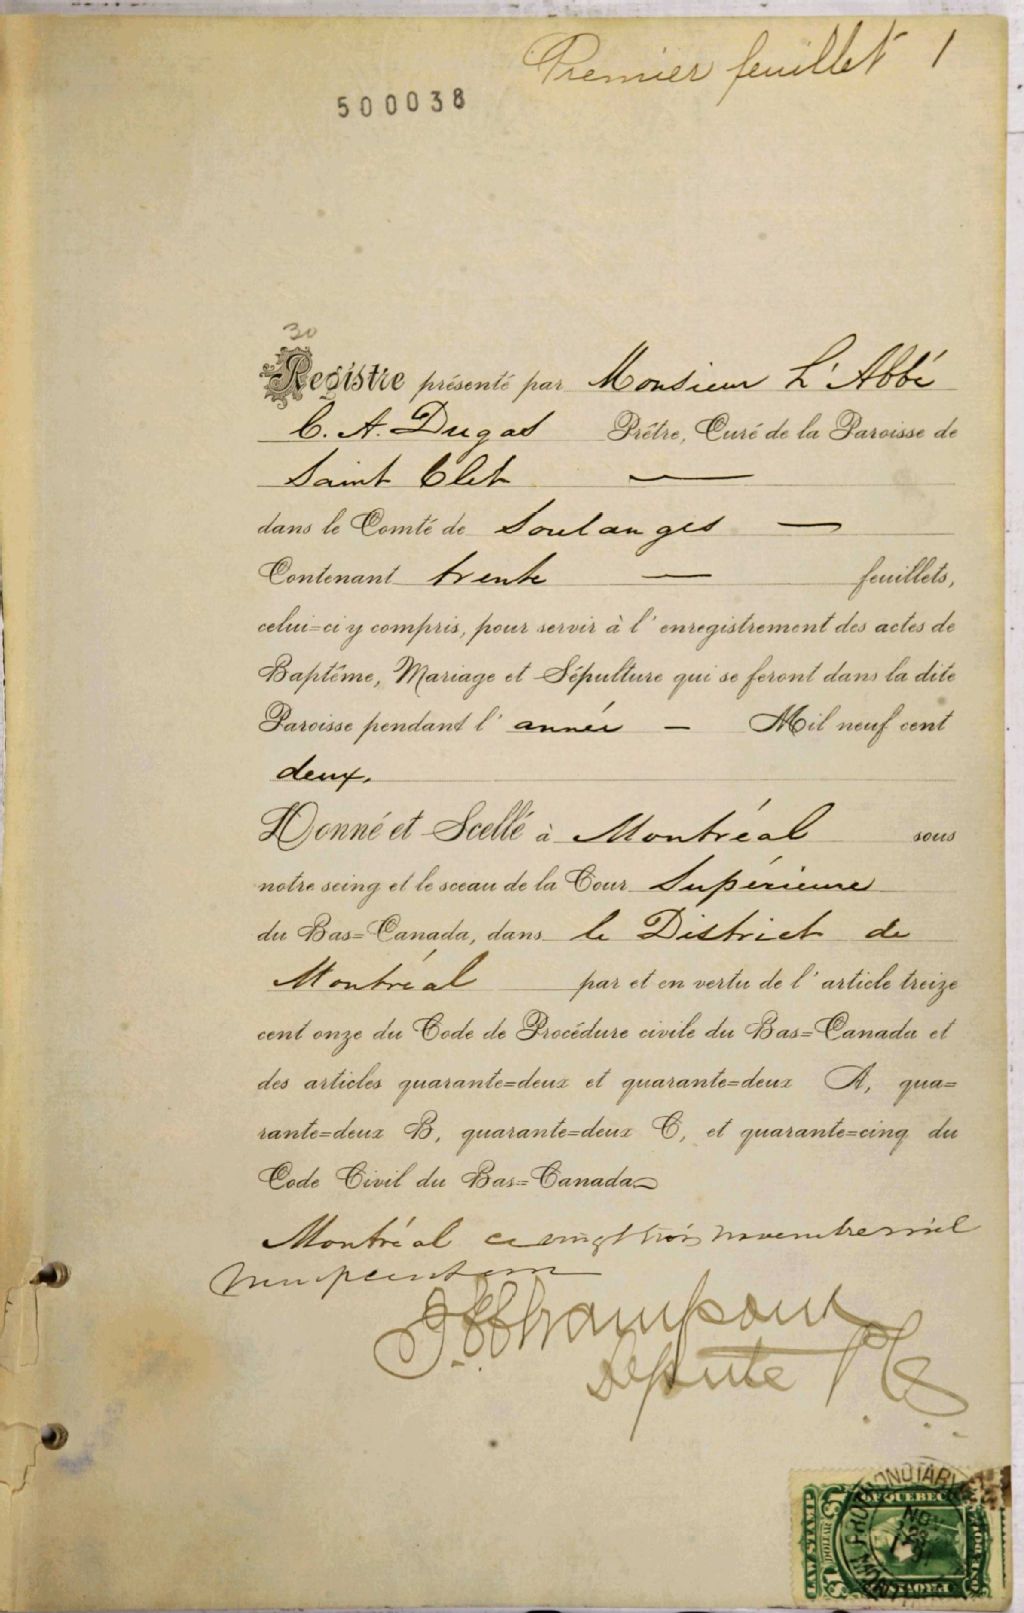 Premier feuillet 1
500038
30
Registre présenté par Monsieur L'Abbé
C. A. Dugas Prêtre, Curé de la Paroisse de
Saint Clet —
dans le Comté de Soulanges —
Contenant trente — feuillets,
celui=ci y compris, pour servir à l'enregistrement des actes de
Baptême, Mariage et Sépulture qui se feront dans la dite
Paroisse pendant l'année — Mil neuf cent
deux.
Donné et Scellé à Montréal sous
notre seing et le sceau de la Cour Supérieure
du Bas=Canada, dans le District de
Montréal par et en vertu de l'article treize
cent onze du Code de Procédure civile du Bas=Canada et
des articles quarante=deux et quarante=deux A, qua=
rante=deux B, quarante=deux C, et quarante=cinq du
Code Civil du Bas=Canada
Montréal ce vingt trois novembre mil
neuf cent un
Député P.C.S.
PROTHONOTARY
QUEBEC
LAW STAMP
$1 DOLLAR
NO
23